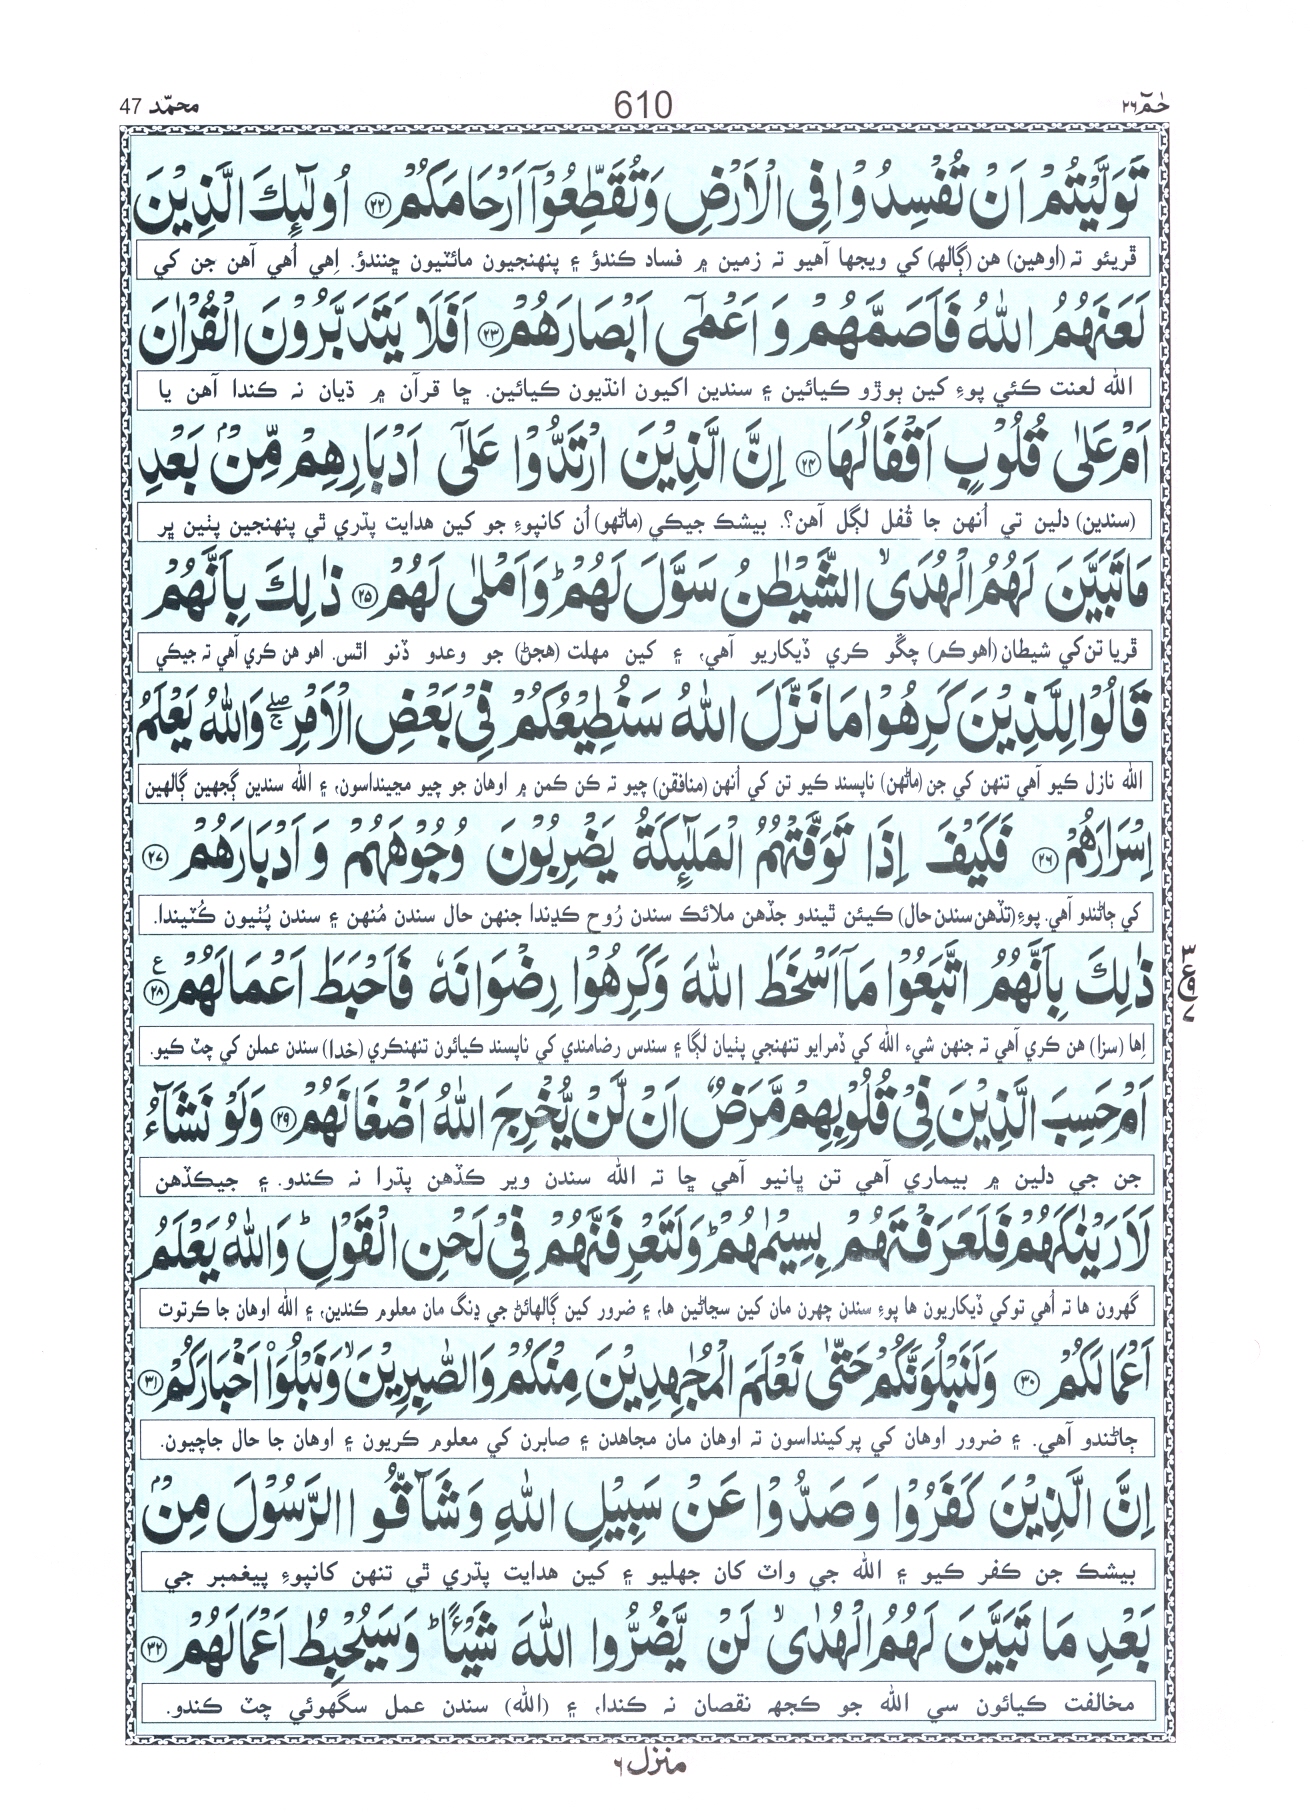 حٰمٓ ٢٦ 610 محمّد 47
تَوَلَّيْتُمْ اَنْ تُفْسِدُوْا فِى الْاَرْضِ وَتُقَطِّعُوْٓا اَرْحَامَكُمْ ﴿٢٢﴾ اُولٰٓئِكَ الَّذِيْنَ
ڦريئو تہ (اوهين) هن (ڳالھ) کي ويجها آهيو تہ زمين ۾ فساد ڪندؤ ۽ پنهنجيون مائٽيون ڇنندؤ. اِهي اُهي آهن جن کي
لَعَنَهُمُ اللّٰهُ فَاَصَمَّهُمْ وَ اَعْمٰٓى اَبْصَارَهُمْ ﴿٢٣﴾ اَفَلَا يَتَدَبَّرُوْنَ الْقُرْاٰنَ
الله لعنت ڪئي پوءِ کين ٻوڙو ڪيائين ۽ سندين اکيون انڌيون ڪيائين. ڇا قرآن ۾ ڌيان نہ ڪندا آهن يا
اَمْ عَلٰى قُلُوْبٍ اَقْفَالُهَا ﴿٢٤﴾ اِنَّ الَّذِيْنَ ارْتَدُّوْا عَلٰٓى اَدْبَارِهِمْ مِّنْۢ بَعْدِ
(سندين) دلين تي اُنهن جا قُفل لڳل آهن؟. بيشڪ جيڪي (ماڻهو) اُن کانپوءِ جو کين هدايت پڌري ٿي پنهنجين پٺين ڀر
مَا تَبَيَّنَ لَهُمُ الْهُدَىۙ الشَّيْطٰنُ سَوَّلَ لَهُمْؕ وَاَمْلٰى لَهُمْ ﴿٢٥﴾ ذٰلِكَ بِاَنَّهُمْ
ڦريا تن کي شيطان (اهو ڪم) چڱو ڪري ڏيکاريو آهي، ۽ کين مهلت (هجڻ) جو وعدو ڏنو اٿس. اهو هن ڪري آهي تہ جيڪي
قَالُوْا لِلَّذِيْنَ كَرِهُوْا مَا نَزَّلَ اللّٰهُ سَنُطِيْعُكُمْ فِىْ بَعْضِ الْاَمْرِۖۚ وَاللّٰهُ يَعْلَمُ
الله نازل ڪيو آهي تنهن کي جن (ماڻهن) ناپسند ڪيو تن کي اُنهن (منافقن) چيو تہ ڪن ڪمن ۾ اوهان جو چيو مڃينداسون، ۽ الله سندين ڳجهين ڳالهين
اِسْرَارَهُمْ ﴿٢٦﴾ فَكَيْفَ اِذَا تَوَفَّتْهُمُ الْمَلٰٓئِكَةُ يَضْرِبُوْنَ وُجُوْهَهُمْ وَ اَدْبَارَهُمْ ﴿٢٧﴾
کي ڄاڻندو آهي. پوءِ (تڏهن سندن حال) ڪيئن ٿيندو جڏهن ملائڪ سندن رُوح ڪڍندا جنهن حال سندن مُنهن ۽ سندن پُٺيون ڪُٽيندا.
ذٰلِكَ بِاَنَّهُمُ اتَّبَعُوْا مَآ اَسْخَطَ اللّٰهَ وَكَرِهُوْا رِضْوَانَهٗ فَاَحْبَطَ اَعْمَالَهُمْ ﴿٢٨﴾ ع
اِها (سزا) هن ڪري آهي تہ جنهن شيء الله کي ڏمرايو تنهنجي پٺيان لڳا ۽ سندس رضامندي کي ناپسند ڪيائون تنهنڪري (خدا) سندن عملن کي چٽ ڪيو.
اَمْ حَسِبَ الَّذِيْنَ فِىْ قُلُوْبِهِمْ مَّرَضٌ اَنْ لَّنْ يُّخْرِجَ اللّٰهُ اَضْغَانَهُمْ ﴿٢٩﴾ وَلَوْ نَشَآءُ
جن جي دلين ۾ بيماري آهي تن ڀانيو آهي ڇا تہ الله سندن وير ڪڏهن پڌرا نہ ڪندو. ۽ جيڪڏهن
لَاَرَيْنٰكَهُمْ فَلَعَرَفْتَهُمْ بِسِيْمٰهُمْؕ وَلَتَعْرِفَنَّهُمْ فِىْ لَحْنِ الْقَوْلِؕ وَاللّٰهُ يَعْلَمُ
گهرون ها تہ اُهي توکي ڏيکاريون ها پوءِ سندن چهرن مان کين سڃاڻين ها، ۽ ضرور کين ڳالهائڻ جي ڍنگ مان معلوم ڪندين، ۽ الله اوهان جا ڪرتوت
اَعْمَالَكُمْ ﴿٣٠﴾ وَلَنَبْلُوَنَّكُمْ حَتّٰى نَعْلَمَ الْمُجٰهِدِيْنَ مِنْكُمْ وَالصّٰبِرِيْنَۙ وَنَبْلُوَا۟ اَخْبَارَكُمْ ﴿٣١﴾
ڄاڻندو آهي. ۽ ضرور اوهان کي پرکينداسون تہ اوهان مان مجاهدن ۽ صابرن کي معلوم ڪريون ۽ اوهان جا حال جاچيون.
اِنَّ الَّذِيْنَ كَفَرُوْا وَصَدُّوْا عَنْ سَبِيْلِ اللّٰهِ وَشَآقُّوا الرَّسُوْلَ مِنْۢ
بيشڪ جن ڪفر ڪيو ۽ الله جي واٽ کان جهليو ۽ کين هدايت پڌري ٿي تنهن کانپوءِ پيغمبر جي
بَعْدِ مَا تَبَيَّنَ لَهُمُ الْهُدٰىۙ لَنْ يَّضُرُّوا اللّٰهَ شَيْـًٔاؕ وَسَيُحْبِطُ اَعْمَالَهُمْ ﴿٣٢﴾
مخالفت ڪيائون سي الله جو ڪجهہ نقصان نہ ڪندا، ۽ (الله) سندن عمل سگهوئي چٽ ڪندو.
منزل ٦